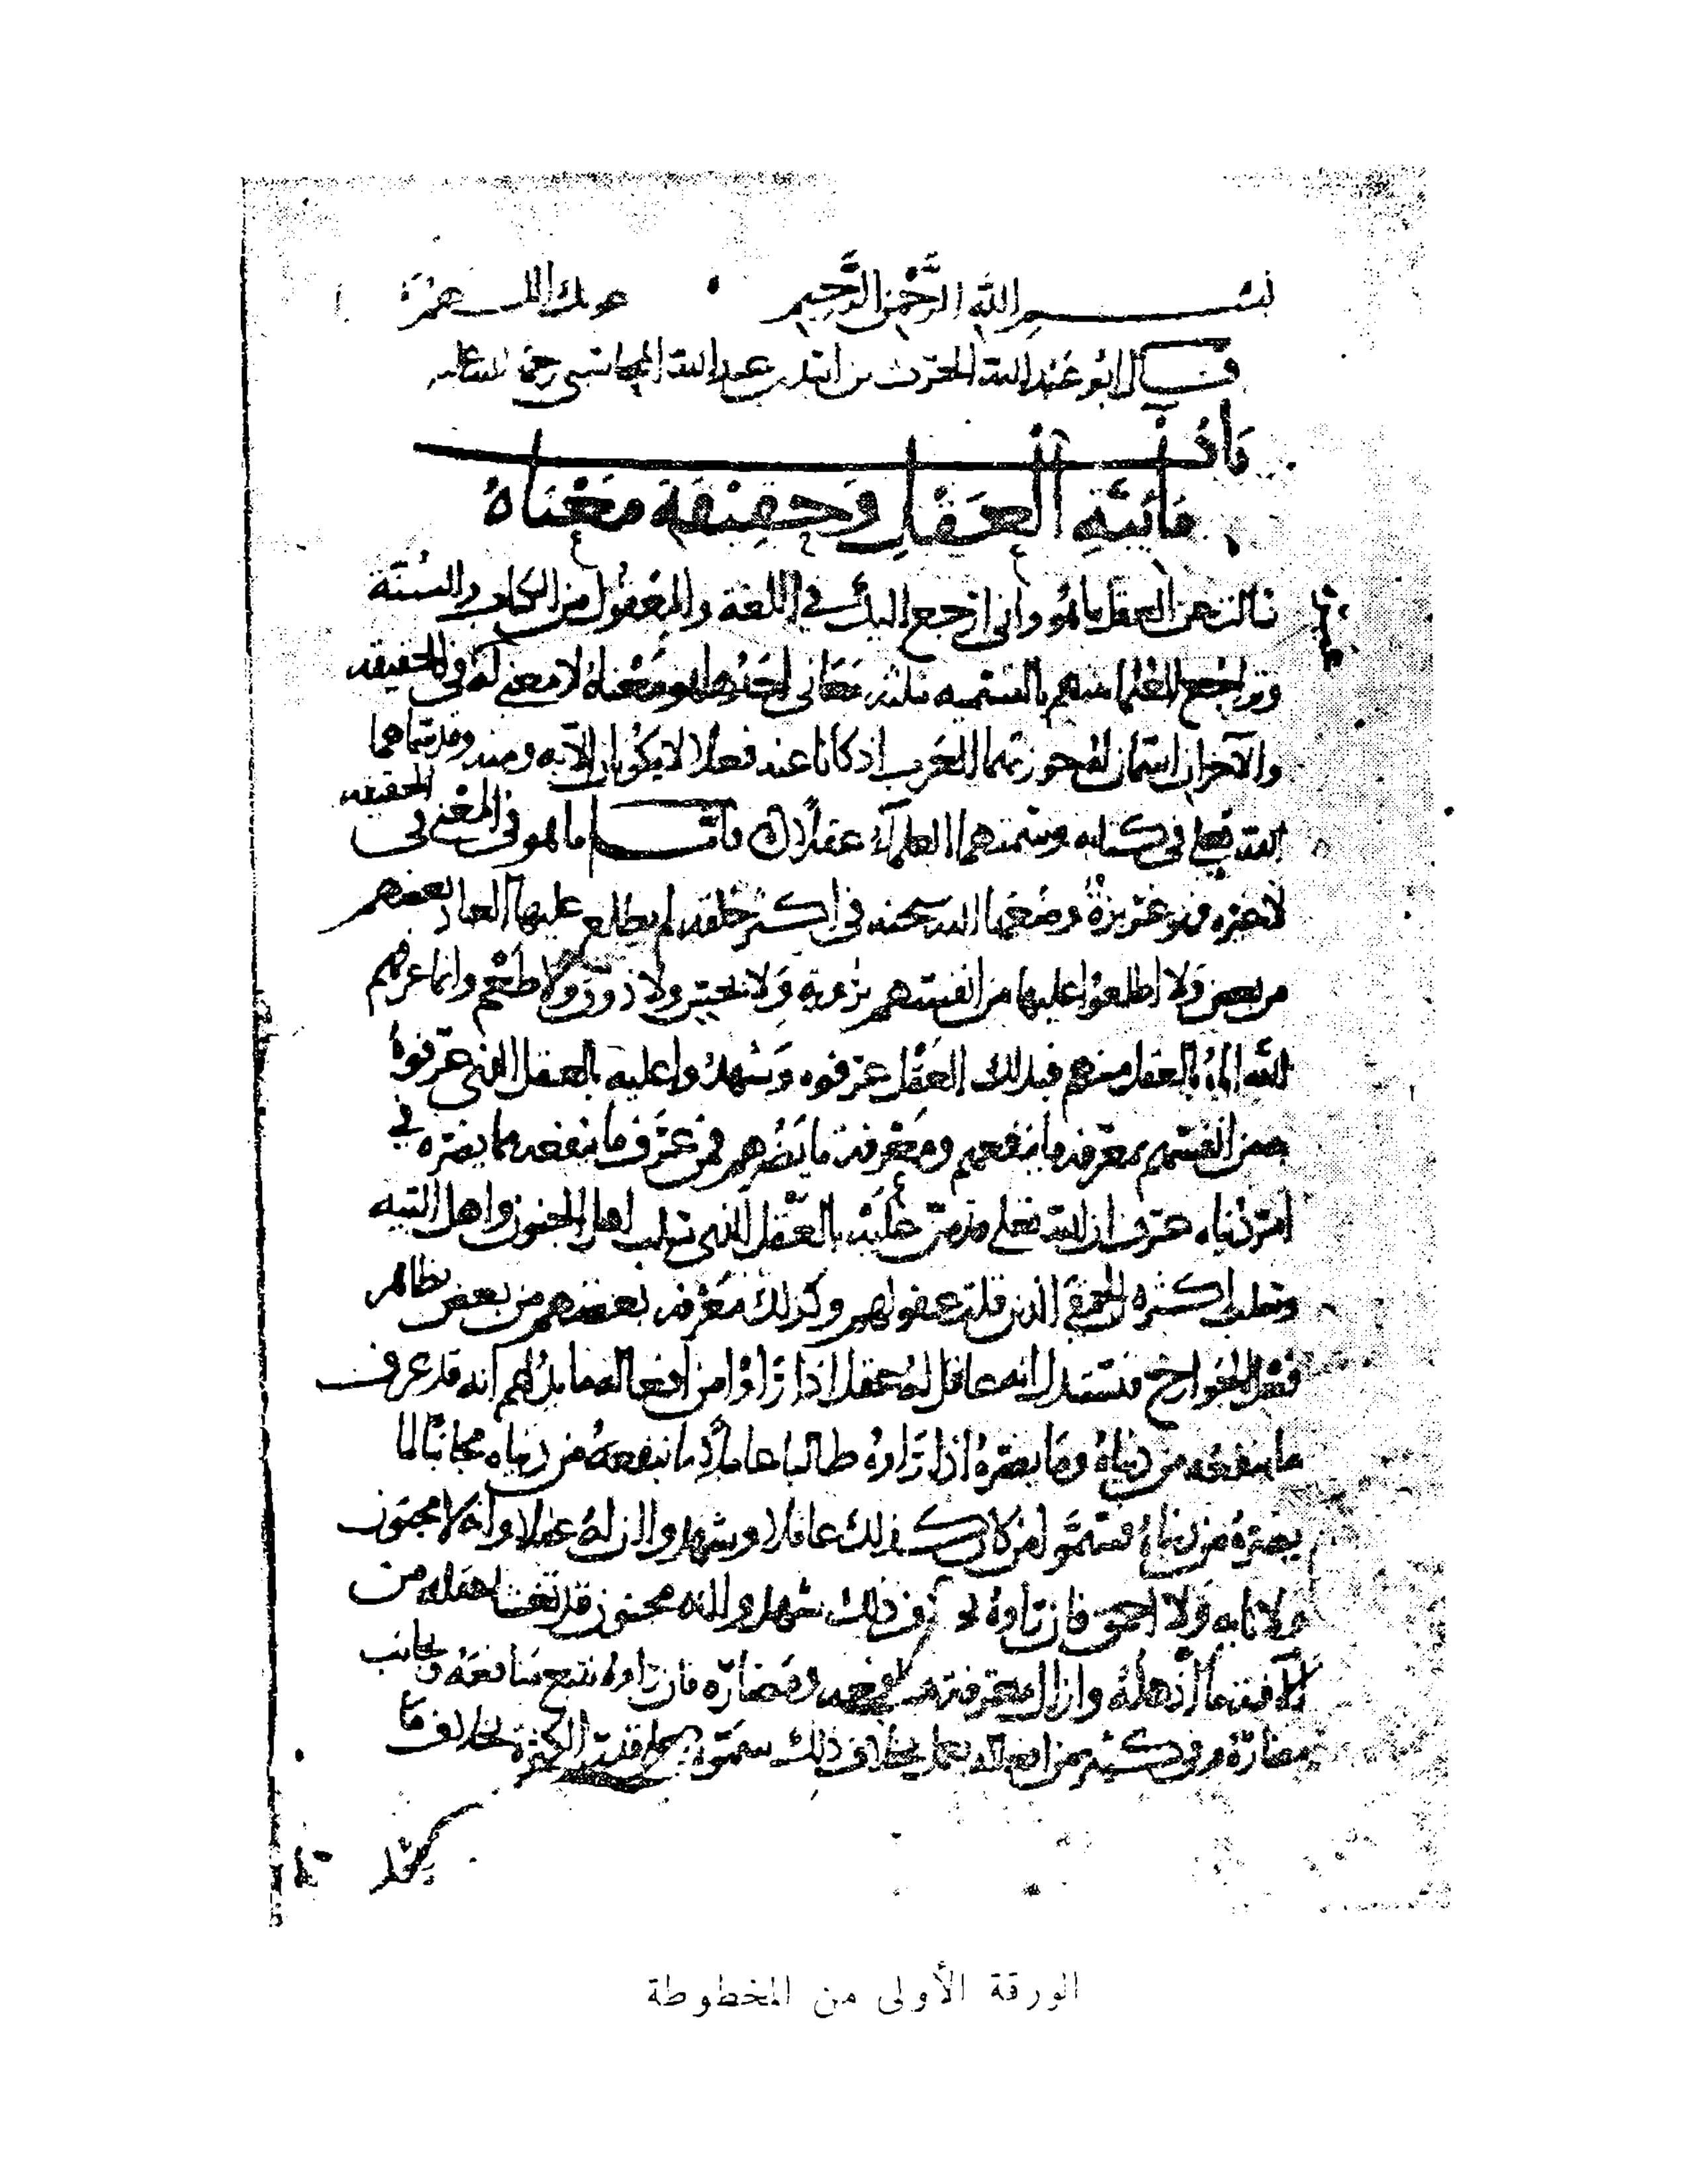 بسم الله الرحمن الرحيم عونك اللهم
قال ابو عبد الله الحرث بن اسد بن عبد الله المحاسبي رحمة الله عليه
باب
مائية العقل وحقيقة معناه
سالت عن العقل ما هو واني ارجع اليك في اللغة والمعقول من الكتاب والسنة
وتراجع العلما بينهم بالتسميه ثلثه معاني احدها هو معناه لا معنى له في الحقيقه
والآخران اسمان جوزتهما العرب اذ كانا عنه فعلا لا يكونان الا به ومنه وقد سماهما
الله تعلى في كتابه وسمتهما العلمآء عقلا فاما ما هو في المعنى في الحقيقه
لا غيره فهو غريزة وضعها الله سبحنه في اكثر خلقه لم يطلع عليها العباد بعضهم
من بعض ولا اطلعوا عليها من انفسهم برؤية ولا بحس ولا ذوق ولا طعم وانما عرفهم
الله اياها بالعقل منهم فبذلك العقل عرفوه وشهدوا عليه بالعقل الذي عرفوه
من انفسهم بمعرفة ما ينفعهم ومعرفة ما يضرهم فمن عرف ما ينفعه مما يضره في
امر دنياه عرف ان الله تعلى قد من عليه بالعقل الذي سلب اهل الجنون واهل التيه
وسلب اكثره الحمقى الذين قلت عقولهم وكذلك معرفة بعضهم من بعض بظاهر
فعل الجوارح فتستدل انه عاقل له عقل اذا راوا من افعاله ما يدلهم انه قد عرف
ما ينفعه من دنياه وما يضره اذا راوه طالبا عاملا ما ينفعه من دنياه مجانبا لما
يضره من دنياه فسموا من كان كذلك عاقلا وشهدوا ان له عقلا وانه لا مجنون
ولا تايه ولا احمق فان راوه ذلك شهدوا انه مجنون قد تغشا عقله من
الآفة ما اذهله وازال معرفته منافعه ومضاره فان راوه يتبع منافعه ويجانب
مضاره وفي كثير من افعاله يعمل بخلاف ذلك سموه الكثرة بخلاف ما
الورقة الأولى من المخطوطة